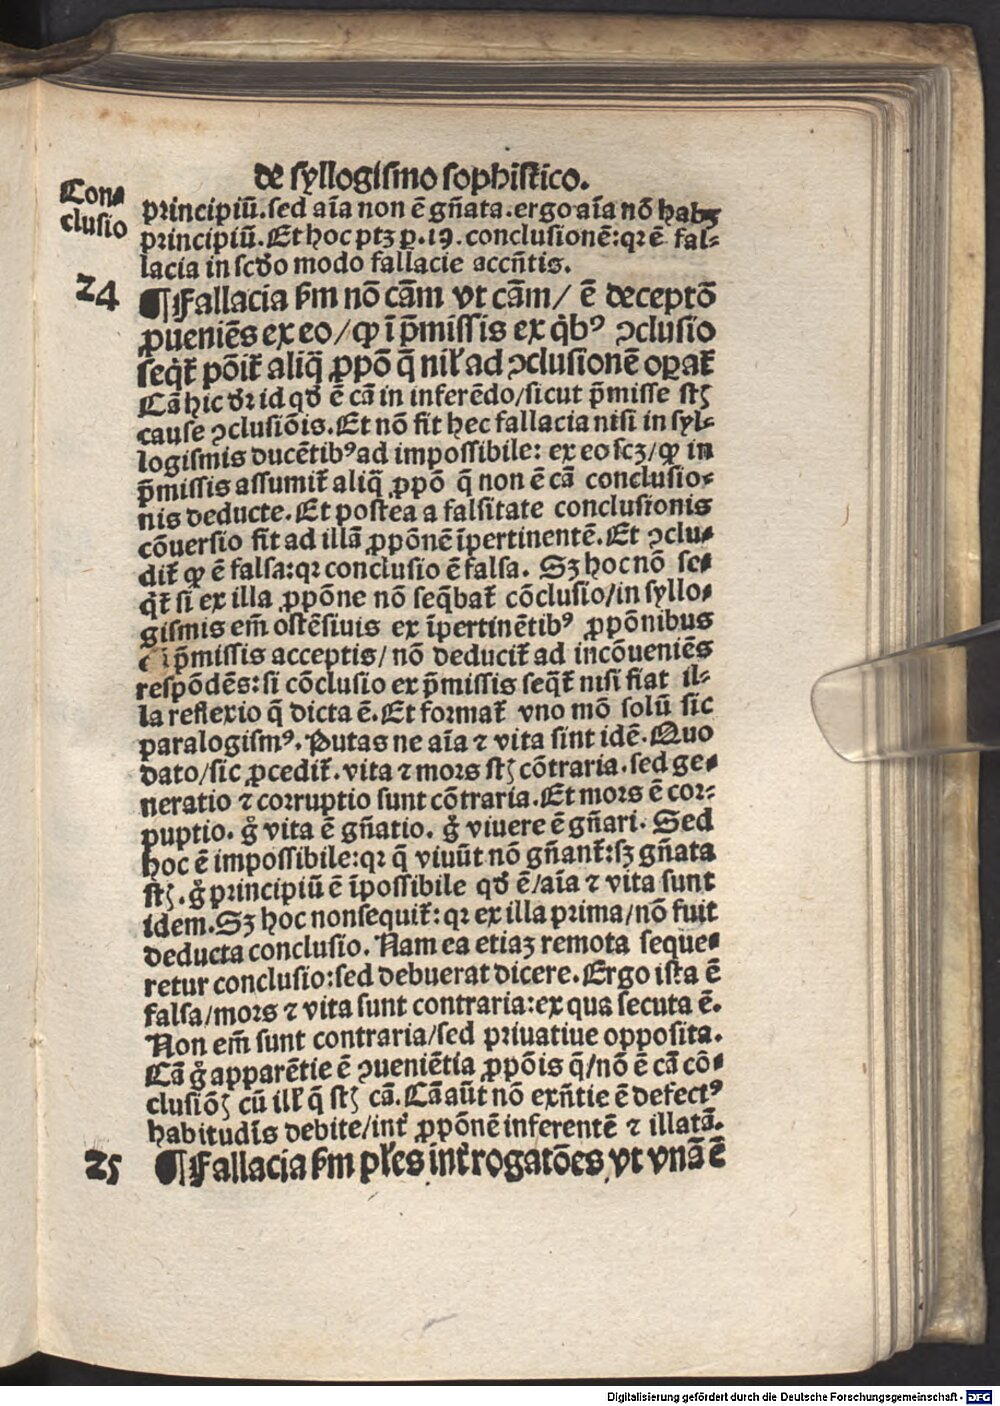 de syllogismo sophistico.
Con⸗
clusio
principiū. sed aīa non ē gn̄ata. ergo aīa nō habꝫ
principiū. Et hoc ptꝫ ꝑ .19. conclusionē: qꝛ ē fal⸗
lacia in scd̓o modo fallacie accn̄tis.
24
¶ Fallacia ẜm nō cām vt cām / ē deceptō
ꝓueniēs ex eo / ꝙ ī p̄missis ex qͥbꝰ ꝯclusio
seqͥt᷑ pōit᷑ aliq̄ ꝓpō q̄ nil̓ ad ꝯclusionē oꝑat᷑
Cā hic dr̄ id qd̓ ē cā in inferēdo / sicut p̄misse st̄
cause ꝯclusiōis. Et nō fit hec fallacia nisi in syl⸗
logismis ducētibꝰ ad impossibile: ex eo scꝫ / ꝙ in
p̄missis assumit᷑ aliq̄ ꝓpō q̄ non ē cā conclusio⸗
nis deducte. Et postea a falsitate conclusionis
cōuersio fit ad illā ꝓpōnē īpertinentē. Et ꝯclu⸗
dit᷑ ꝙ ē falsa: qꝛ conclusio ē falsa. Sꝫ hoc nō se⸗
qͥt᷑ si ex illa ꝓpōne nō seq̄bat᷑ cōclusio / in syllo⸗
gismis em̄ ostēsiuis ex īpertinētibꝰ ꝓpōnibus
ī p̄missis acceptis / nō deducit᷑ ad incōueniēs
respōdēs: si cōclusio ex p̄missis seqͥt᷑ nisi fiat il⸗
la reflexio q̄ dicta ē. Et format᷑ vno mō solū sic
paralogismꝰ. Putas ne aīa ⁊ vita sint idē. Quo
dato / sic ꝓcedit᷑. vita ⁊ mors st̄ cōtraria. sed ge⸗
neratio ⁊ corruptio sunt cōtraria. Et mors ē cor⸗
puptio. gͦ vita ē gn̄atio. gͦ viuere ē gn̄ari. Sed
hoc ē impossibile: qꝛ q̄ viuūt nō gn̄ant᷑: sꝫ gn̄ata
st̄. gͦ principiū ē īpossibile qd̓ ē / aīa ⁊ vita sunt
idem. Sꝫ hoc non sequit᷑: qꝛ ex illa prima / nō fuit
deducta conclusio. Nam ea etiaꝫ remota seque⸗
retur conclusio: sed debuerat dicere. Ergo ista ē
falsa / mors ⁊ vita sunt contraria: ex qua secuta ē.
Non em̄ sunt contraria / sed priuatiue opposita.
Cā gͦ apparētie ē ꝯueniētia ꝓpōis q̄ / nō ē cā cō⸗
clusiōis cū ill̓ q̄ st̄ cā. Cā aūt nō exn̄tie ē defectꝰ
habitudīs debite / int᷑ ꝓpōnē inferentē ⁊ illatā.
25
¶ Fallacia ẜm pl̓es int᷑rogatōes vt vnā ē
Digitalisierung gefördert durch die Deutsche Forschungsgemeinschaft - DFG